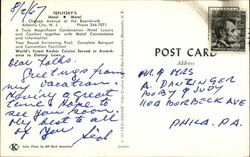 8/2/67
TEPLITZKY'S
Hotel ★ Motel
Chelsea Avenue at the Boardwalk
Atlantic City, N. J. Phone 344-7071
A Truly Magnificent Combination Hotel Luxury
and Comfort together with Motel Convenience
and Informality!
Pool Heated Swimming Pool. Complete Banquet
and Convention Facilities!
World's Finest Kosher Cuisine Served in Accord-
ance to Dietary Laws.
POST CARD
Dear Folks
Greetings from
my vacation
Having a great
time. Hope to
see you soon
My best to all
of you
Sid
MR & MRS
A. DANZINGER
BOBY & JUDY
1108 BORBECK AVE
PHILA. PA.